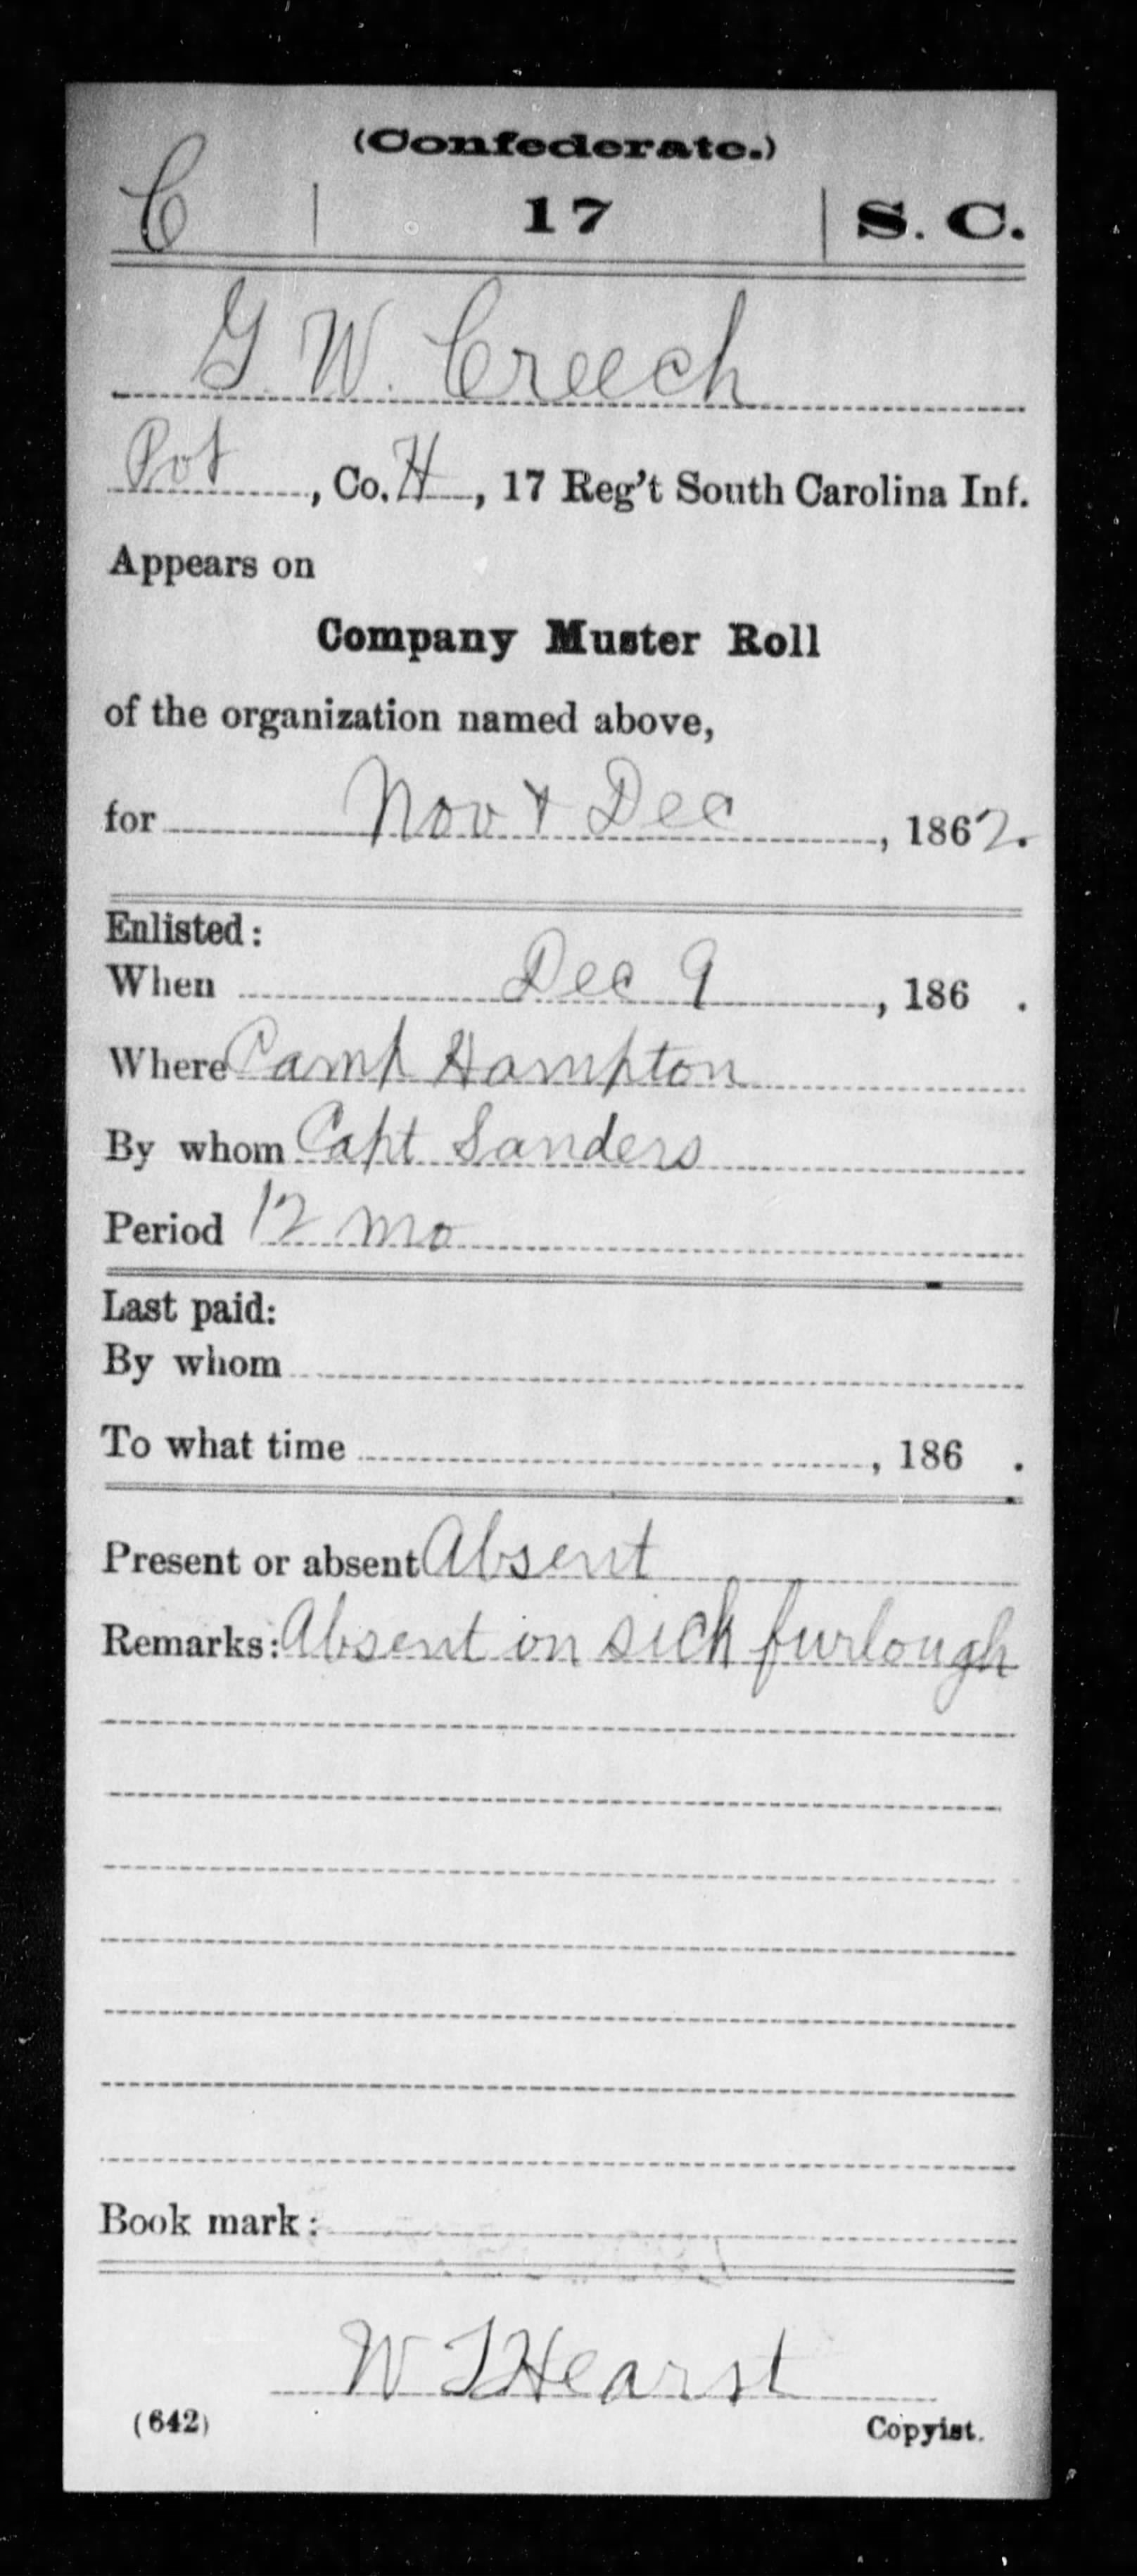 (Confederate.)
C | 17 | S. C.
G. W. Creech
Pvt, Co. H, 17 Reg't South Carolina Inf.
Appears on
Company Muster Roll
of the organization named above,
for Nov & Dec, 1862.
Enlisted:
When Dec 9, 186 .
Where Camp Hampton
By whom Capt Sanders
Period 12 mo
Last paid:
By whom
To what time , 186 .
Present or absent Absent
Remarks: Absent on sick furlough
Book mark:
W T Hearst
(642) Copyist.